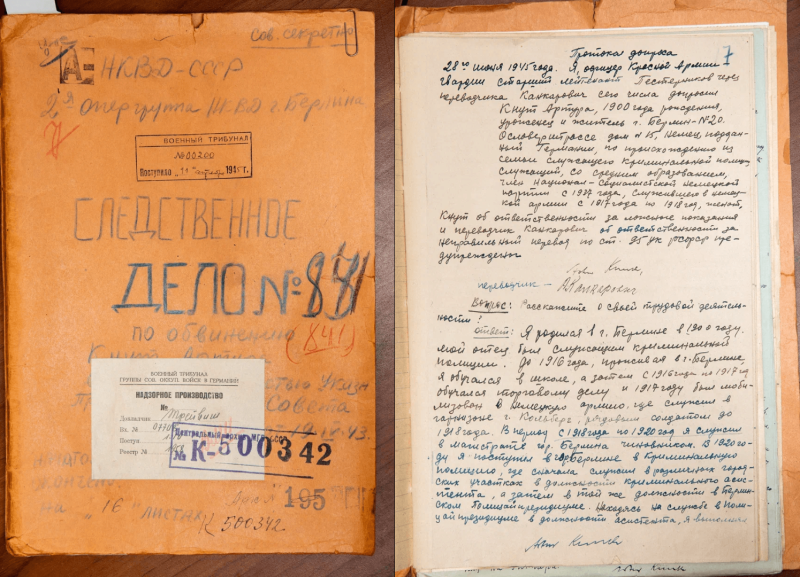 Сов. секретно
НКВД-СССР
2я опергруппа НКВД г. Берлина
ВОЕННЫЙ ТРИБУНАЛ
№00200
Поступило 1945 г.
СЛЕДСТВЕННОЕ
ДЕЛО №
по обвинению
(841)
Указа
Совета
19.IV.43.
ВОЕННЫЙ ТРИБУНАЛ
ГРУППЫ СОВ. ОККУП. ВОЙСК В ГЕРМАНИИ
НАДЗОРНОЕ ПРОИЗВОДСТВО
№
Докладчик
Вх. №
Поступ.
Реестр №
Центральный архив МГБ СССР
№ К-500342
195
на "16" листах
К 500342
7
Протокол допроса
28го июня 1945 года. Я, офицер Красной армии
гвардии старший лейтенант Пестерников через
переводчика Канкарович сего числа допросил
Кнут Артура, 1900 года рождения,
уроженец и житель г. Берлин-N20.
дом №15, немец, поддан-
ный Германии, по происхождению из
семьи служащего криминальной полиции,
служащий, со средним образованием,
член Национал-социалистской немецкой
партии с 1937 года, служивший в немец-
кой армии с 1917 года по 1918 год, женат.
Кнут об ответственности за ложные показания
и переводчик Канкарович об ответственности за
неправильный перевод по ст. 95 УК РСФСР пре-
дупреждены
переводчик - Канкарович
Вопрос: Расскажите о своей трудовой деятель-
ности!
Ответ: Я родился в г. Берлине в 1900 году.
Мой отец был служащим криминальной
полиции. До 1916 года, проживая в г. Берлине
я обучался в школе, а затем с 1916 года по 1917 год
обучался торговому делу и 1917 году был моби-
лизован в немецкую армию, где служил в
гарнизоне Кольберг, рядовым солдатом до
1918 года. В период с 1918 года по 1920 год я служил
в магистрате гор. Берлина чиновником. В 1920 го-
ду я поступил в гор. Берлине в криминальную
полицию, где сначала служил в различных город-
ских участках в должности криминального асис-
тента, а затем в той же должности в Берлин-
ском Полицайпрезидиуме. Находясь на службе в Поли-
цайпрезидиуме в должности асистента, я